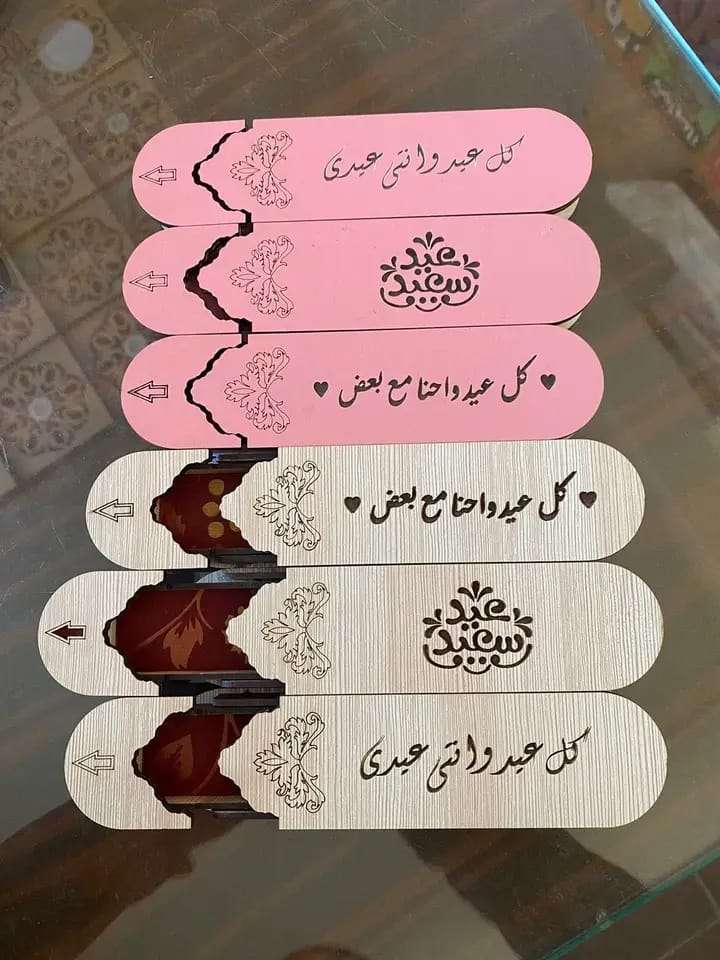 كل عيد وانتى عيدى
عيد
سعيد
كل عيد واحنا مع بعض
كل عيد واحنا مع بعض
عيد
سعيد
كل عيد وانتى عيدى